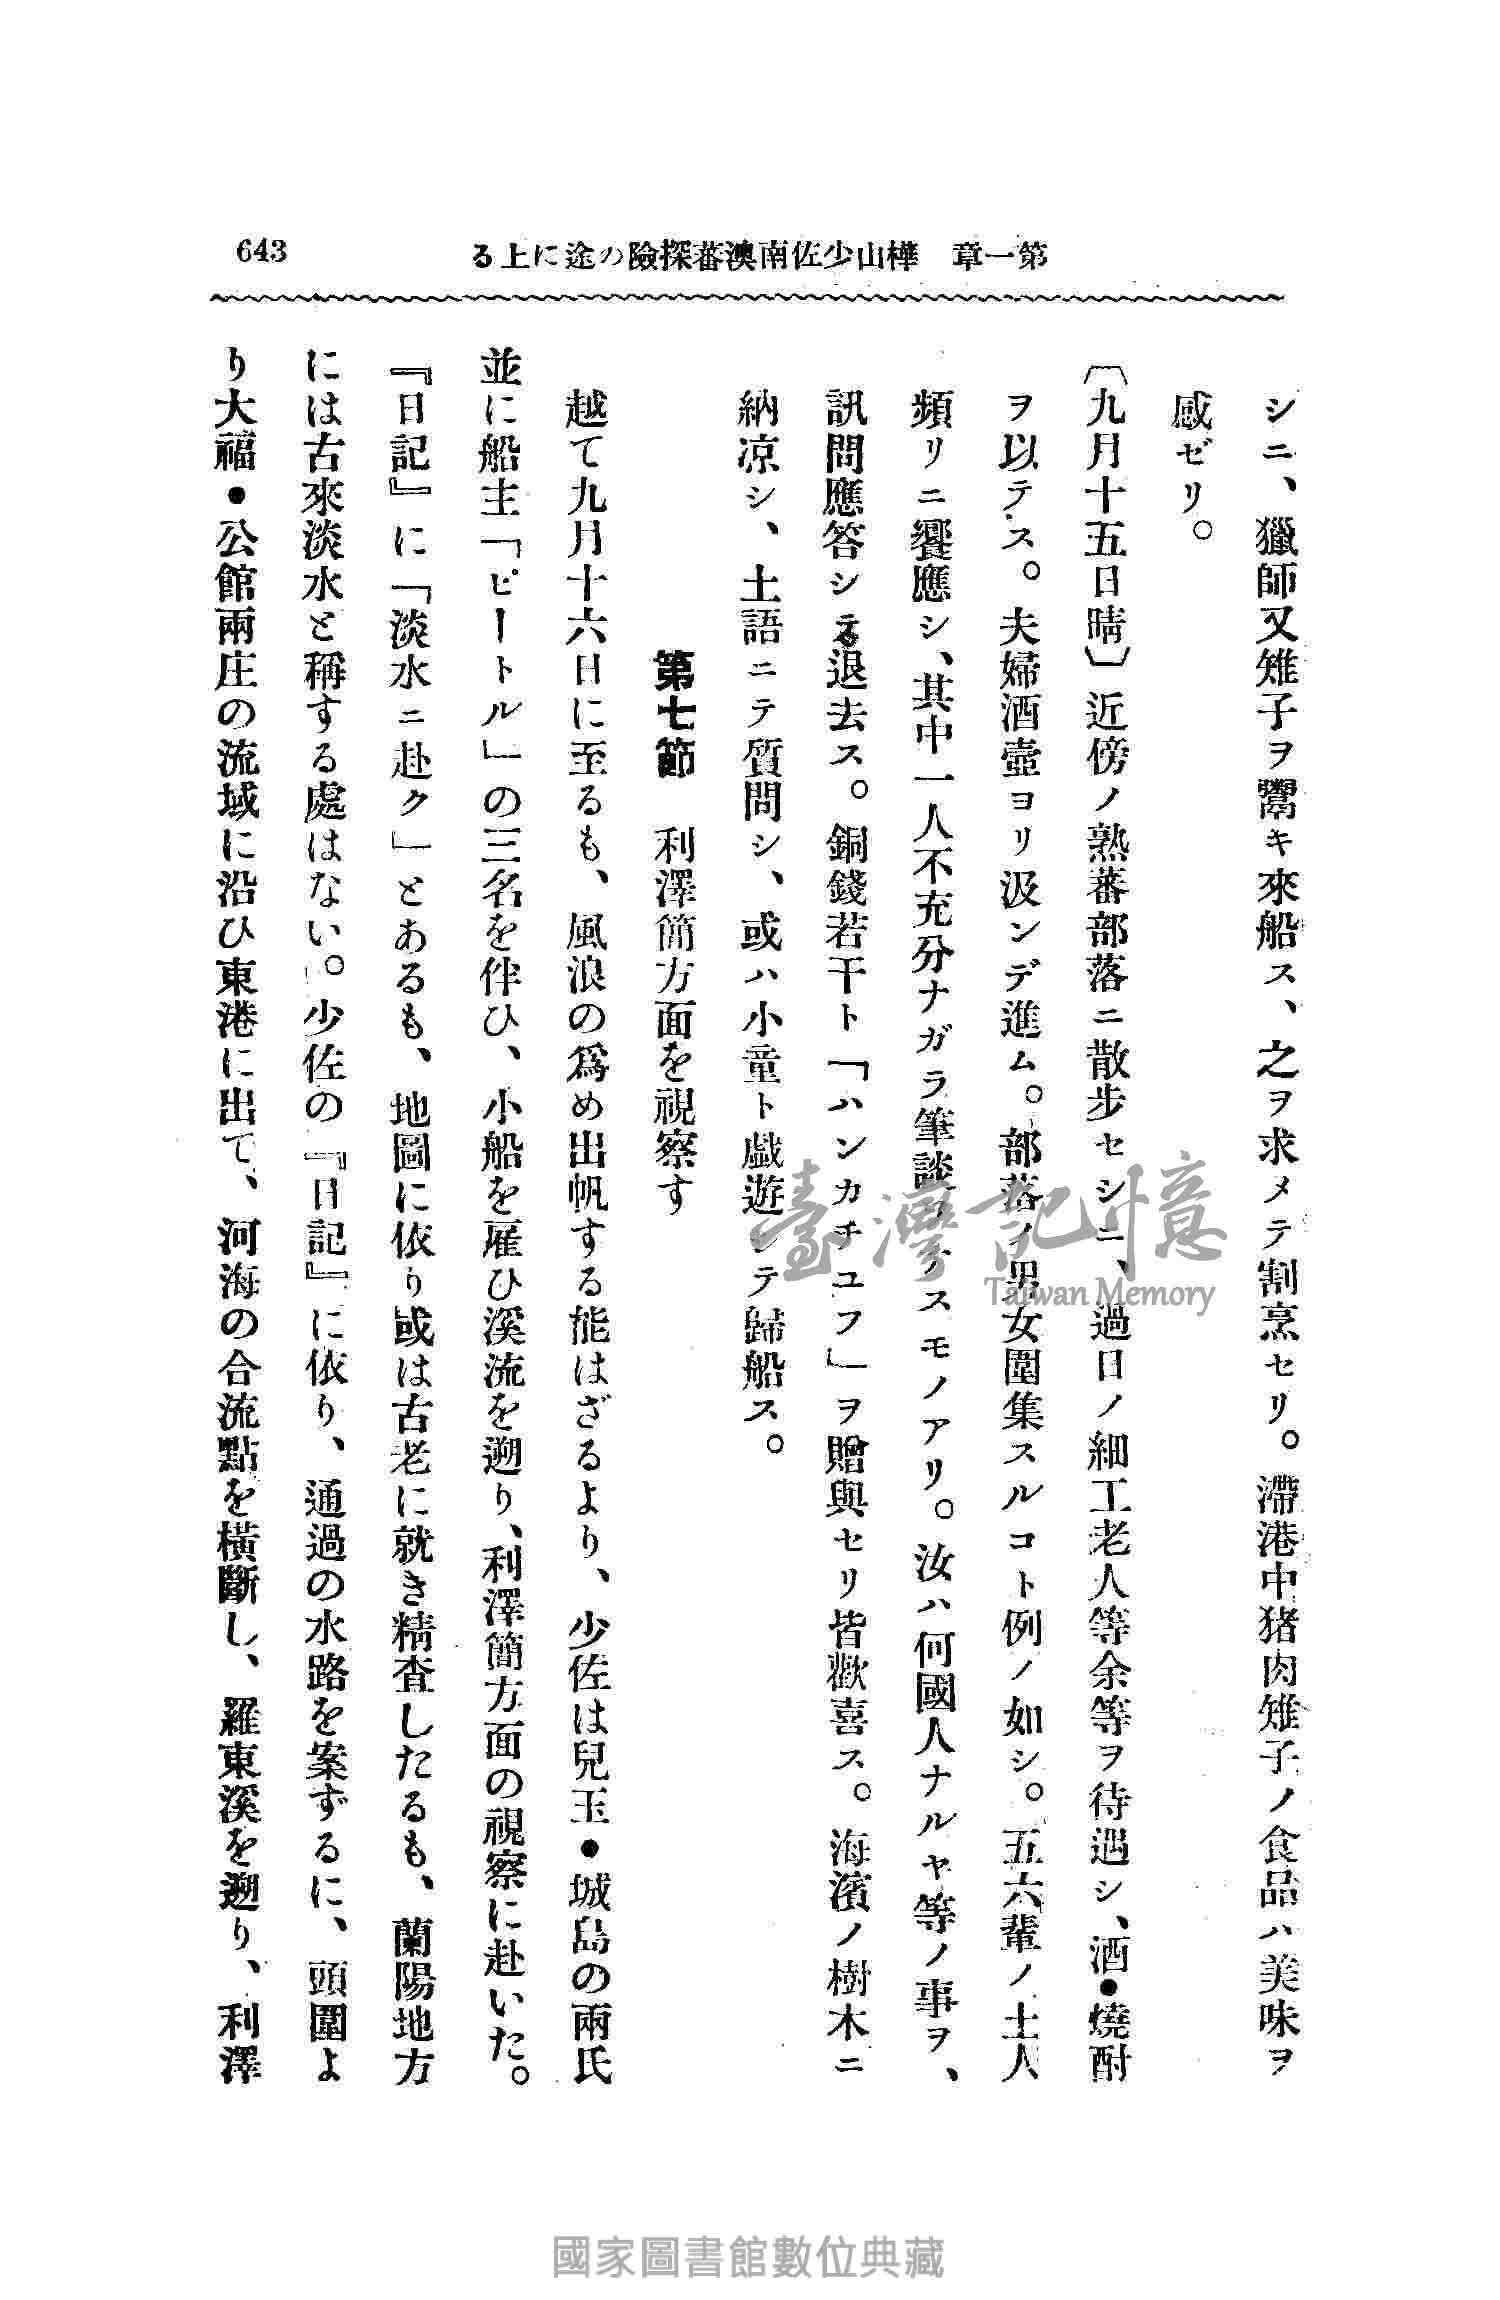 第一章　樺山少佐南澳蕃探險の途に上る
643
シニ、獵師又雉子ヲ鬻キ來船ス、之ヲ求メテ割烹セリ。滯港中猪肉雉子ノ食品ハ美味ヲ
感ゼリ。
〔九月十五日晴〕近傍ノ熟蕃部落ニ散步セシニ、過日ノ細工老人等余等ヲ待遇シ、酒●燒酎
ヲ以テス。夫婦酒壺ヨリ汲ンデ進ム。部落ノ男女圍集スルコト例ノ如シ。五六輩ノ土人
頻リニ饗應シ、其中一人不充分ナガラ筆談ヲナスモノアリ。汝ハ何國人ナルヤ等ノ事ヲ、
訊問應答シ退去ス。銅錢若干ト「ハンカチユフ」ヲ贈與セリ皆歡喜ス。海濱ノ樹木ニ
納凉シ、土語ニテ質問シ、或ハ小童ト戯遊シテ歸船ス。
第七節　利澤簡方面を視察す
越て九月十六日に至るも、風浪の爲め出帆する能はざるより、少佐は兒玉●城島の兩氏
並に船主「ピートル」の三名を伴ひ、小船を雇ひ溪流を遡り、利澤簡方面の視察に赴いた。
『日記』に「淡水ニ赴ク」とあるも、地圖に依り或は古老に就き精査したるも、蘭陽地方
には古來淡水と稱する處はない。少佐の『日記』に依り、通過の水路を案ずるに、頭圍よ
り大福●公館兩庄の流域に沿ひ東港に出て、河海の合流點を橫斷し、羅東溪を遡り、利澤
臺灣記憶
Taiwan Memory
國家圖書館數位典藏